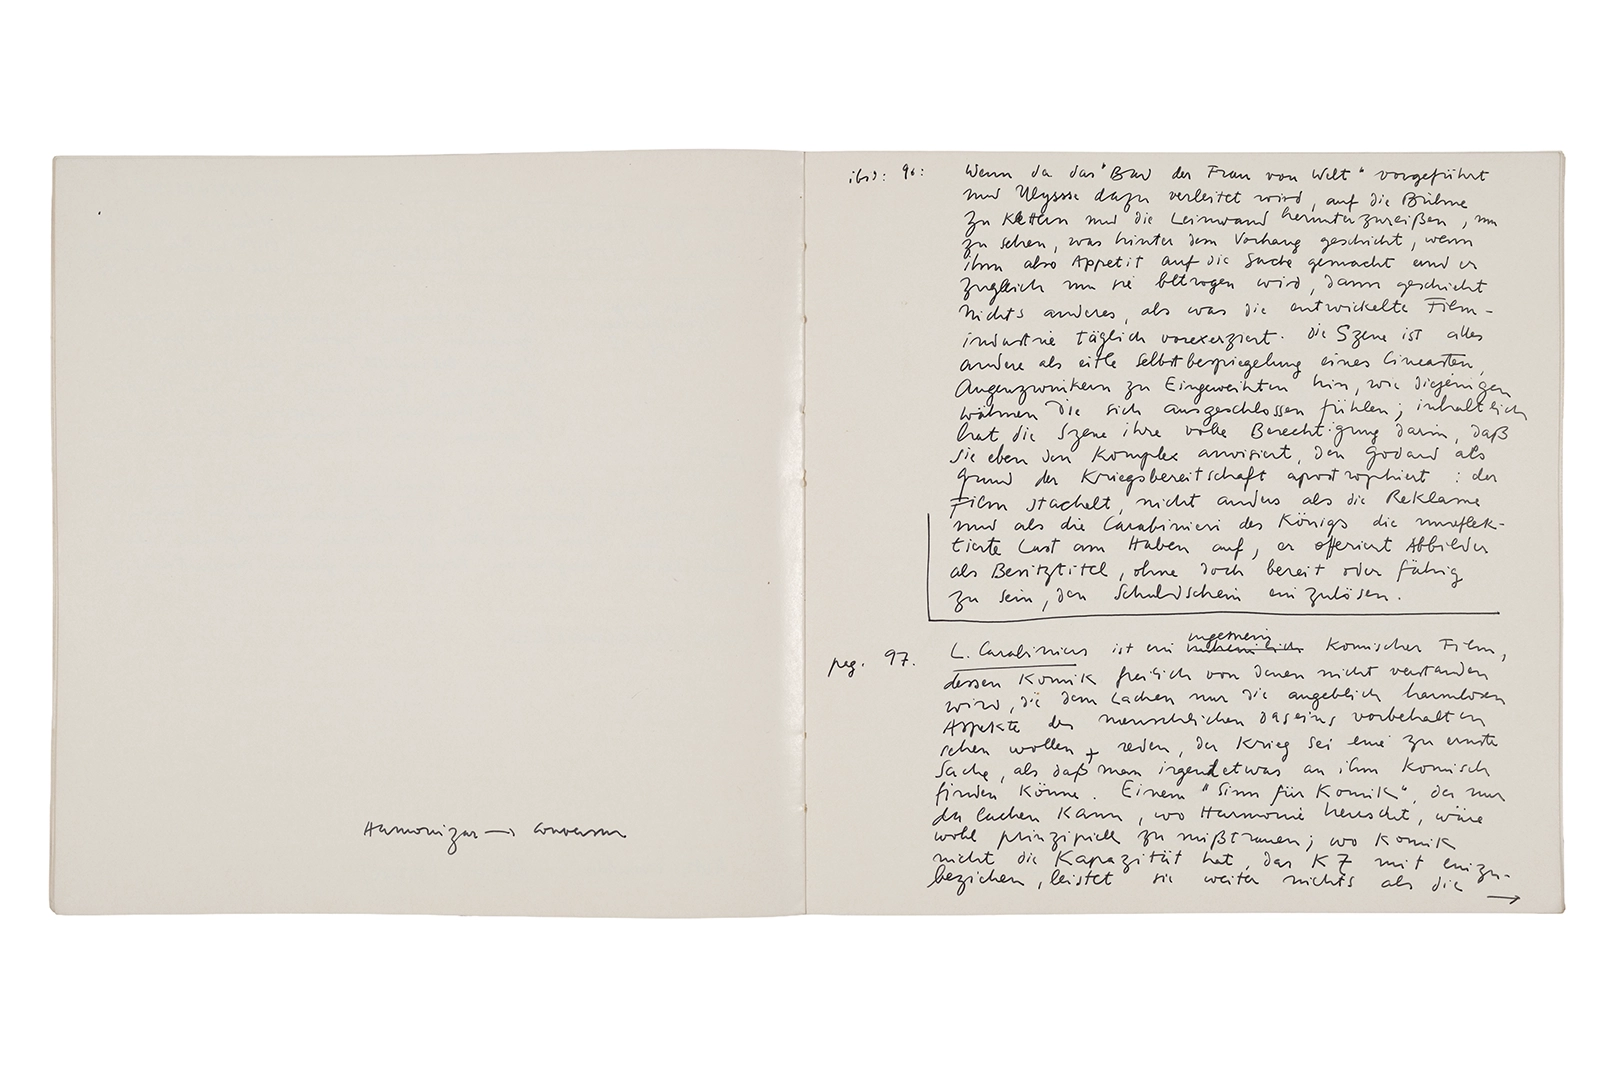 Harmonizar → conversar
ibid: 96:
Wenn da das "Bad der Frau von Welt" vorgeführt
und Ulysse dazu verleitet wird, auf die Bühne
zu klettern und die Leinwand herunterzureißen, um
zu sehen, was hinter dem Vorhang geschieht, wenn
ihm also Appetit auf die Sache gemacht und er
zugleich um sie betrogen wird, dann geschieht
nichts anderes, als was die entwickelte Film-
industrie täglich vorexerziert. Die Szene ist alles
andere als eitle Selbstbespiegelung eines Cineasten,
Augenzwinkern zu Eingeweihten hin, wie diejenigen
wähnen die sich ausgeschlossen fühlen; inhaltlich
hat die Szene ihre volle Berechtigung darin, daß
sie eben den Komplex anvisiert, den Godard als
Grund der Kriegsbereitschaft apostrophiert: der
Film stachelt, nicht anders als die Reklame
und als die Carabinieri des Königs die unreflek-
tierte Lust am Haben auf, er offeriert Abbilder
als Besitztitel, ohne doch bereit oder fähig
zu sein, den Schuldschein einzulösen.
pag. 97.
ungemein
L. Carabiniers ist ein komischer Film,
dessen Komik freilich von denen nicht verstanden
wird, die dem Lachen nur die angeblich harmlosen
Aspekte des menschlichen Daseins vorbehalten
sehen wollen + reden, der Krieg sei eine zu ernste
Sache, als daß man irgendetwas an ihm komisch
finden könne. Einem "Sinn für Komik", der nur
da lachen kann, wo Harmonie herrscht, wäre
wohl prinzipiell zu mißtrauen; wo Komik
nicht die Kapazität hat, das KZ mit einzu-
beziehen, leistet sie weiter nichts als die
→